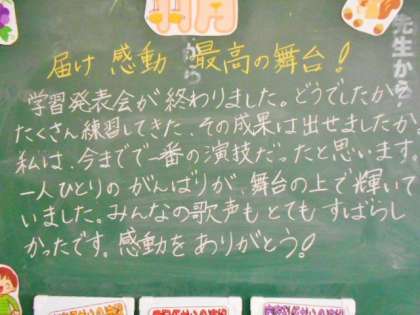 先生から
届け 感動 最高の舞台!
学習発表会が終わりました。どうでしたか。
たくさん練習してきた、その成果は出せましたか
私は、今までで一番の演技だったと思います。
一人ひとりのがんばりが、舞台の上で輝いて
いました。みんなの歌声もとてもすばらし
かったです。感動をありがとう!